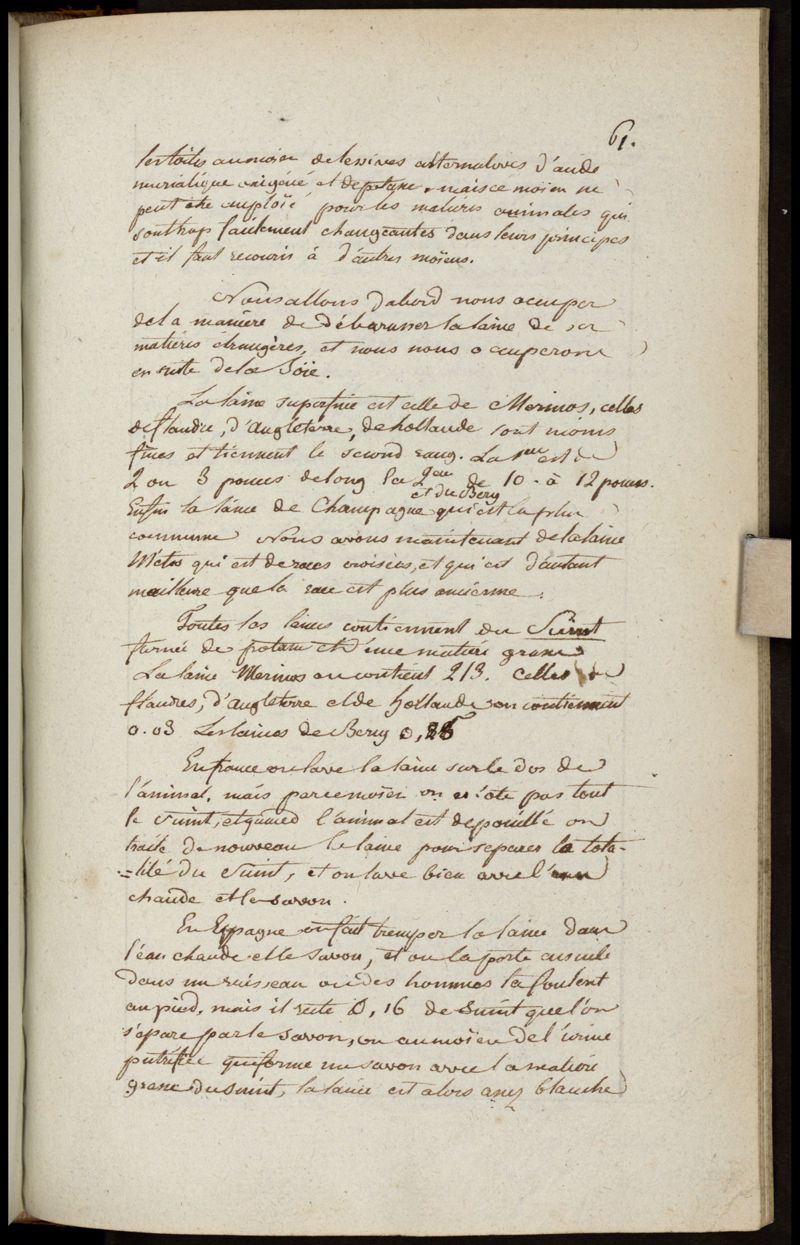 61.
les toiles au moien de lessives alternatives d'acide
muriatique oxigéné et de potasse. mais ce moien ne
peut etre emploïé pour les matieres animales qui
sont trop facilement changeantes dans leurs principes
et il faut recourir à d'autres moïens.
Nous allons d'abord nous occuper
de la maniere de débarasser la laine de ses
matieres étrangères, et nous nous occuperons
en suite de la Soïe.
La laine superfine est celle de Merinos, celles
de flandre, d'angleterre, de hollande sont moins
fines et tiennent le second rang. La 1ere est de
2 ou 3 pouces de long la 2eme de 10. à 12 pouces.
et du Bery
Enfin la laine de Champagne qui est la plus
commune Nous avons maintenant de la laine
Métos qui est de races croisées, et qui est d'autant
meilleure que la race est plus ancienne.
Toutes les laines contiennent du Suint
formé de potasse et d'une matiere grasse
La laine Merinos en contient 2/3. celles de
flandres, d'angleterre et de hollande en contiennent
0.03 Les laines de Berry 0,25
En france on lave la laine sur le dos de
l'animal, mais par ce moïen on n'ote pas tout
le suint, et quand l'animal est depouillé on
traite de nouveau la laine pour separer la tota-
=lité du Suint, et on lave bien avec l'eau
chaude et le savon.
En Espagne on fait tremper la laine dans
l'eau chaude et le savon, et on la porte ensuite
dans un ruisseau où des hommes la foulent
au pied. mais il reste 0,16 de Suint que l'on
s'épare par le savon, ou au moïen de l'urine
putrifiée qui forme un savon avec la matiere
grasse du suint, la laine est alors assez blanche